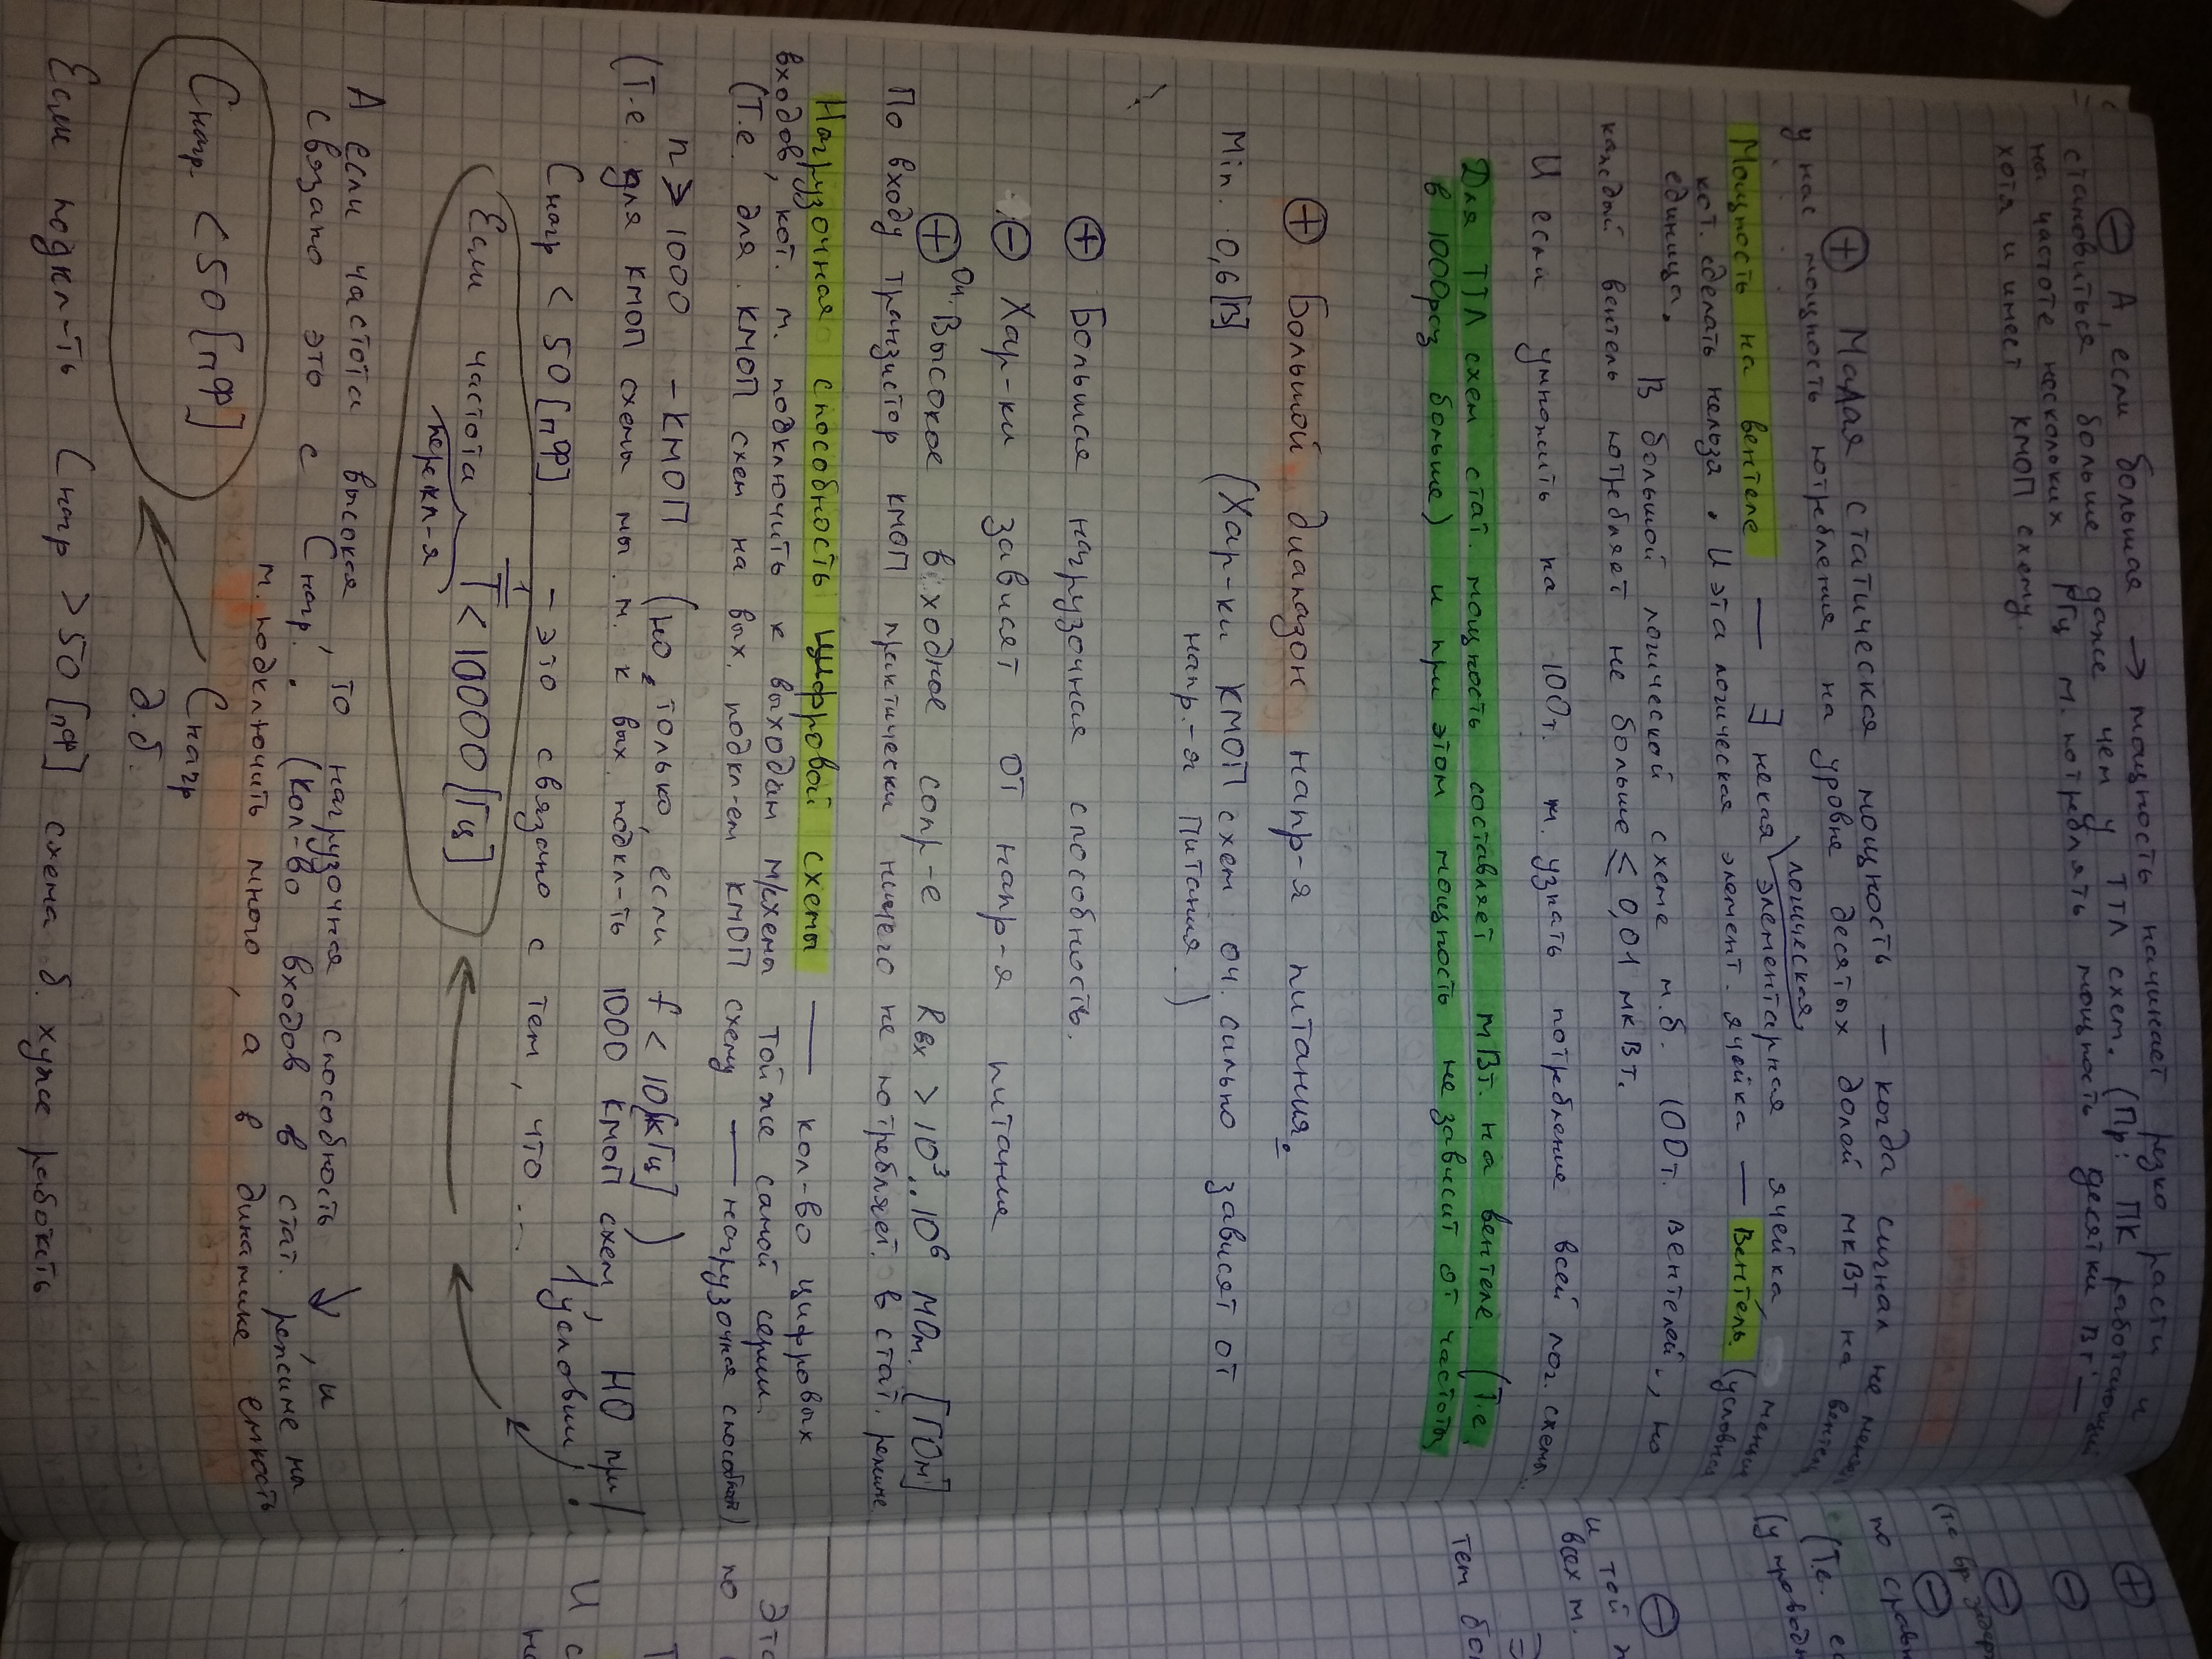 ⊖ А, если большая → мощность начинает резко расти и
становиться больше даже чем у ТТЛ схем. (Пр: ПК работающий
на частоте нескольких ГГц м. потреблять мощность десятки Вт —
хотя и имеет КМОП схему.
⊕ Малая статическая мощность — когда сигнал не меня
у нас мощность потребления на уровне десятых долей мкВт на вентель
Мощность на вентеле — ∃ некая логическая элементарная ячейка меньш
кот. сделать нельза. И эта логическая элемент. ячейка — Вентель. (условная
единица. В большой логической схеме м.б. 100т. вентелей, но
каждый вентель потребляет не больше ≤ 0,01 мкВт.
И если умножить на 100т. м. узнать потребление всей лог. схемы.
Для ТТЛ схем стат. мощность составляет мВт. на вентеле (Т.е.
в 1000раз больше) и при этом мощность не зависит от частоты
⊕ Большой диапазон напр-я питания.
Min. 0,6 [В] (Хар-ки КМОП схем оч. сильно зависят от
напр.-я Питания.)
⊕ Большая нагрузочная способность.
⊖ Хар-ки зависят от напр-я питания
⊕ Оч. Высокое входное сопр-е Rвх > 10³..10⁶ МОм. [ГОм]
По входу транзистор КМОП практически ничего не потребляет. в стат. режиме
Нагрузочная способность Цифровой схемы — кол-во цифровых
входов, кот. м. подключить к выходам м/схемы той же самой серии.
(Т.е. для КМОП схем на вых. подкл-ем КМОП схему — нагрузочная способност)
n ≥ 1000 - КМОП (но, только, если f < 10[кГц])
(Т-е. для КМОП схемы мы м. к вых. подкл-ть 1000 КМОП схем, НО при
Снагр < 50 [пФ] - это связано с тем, что... 1 условии!
Если частота перекл-я 1/T < 10000 [Гц]
А если частота высокая, то нагрузочная способность ↓, и
связано это с Снагр. (Кол-во входов в стат. режиме мы
м. подключить много, а в динамике емкость
Снагр < 50 [пФ] Снагр
д.б.
Если подкл-ть Снагр > 50 [пФ] схема б. хуже работать
⊕
⊖
⊖
⊖
по сравн
(Т.е.
⊖
и той
всех м.
тем бо
Это
по
Т
И с